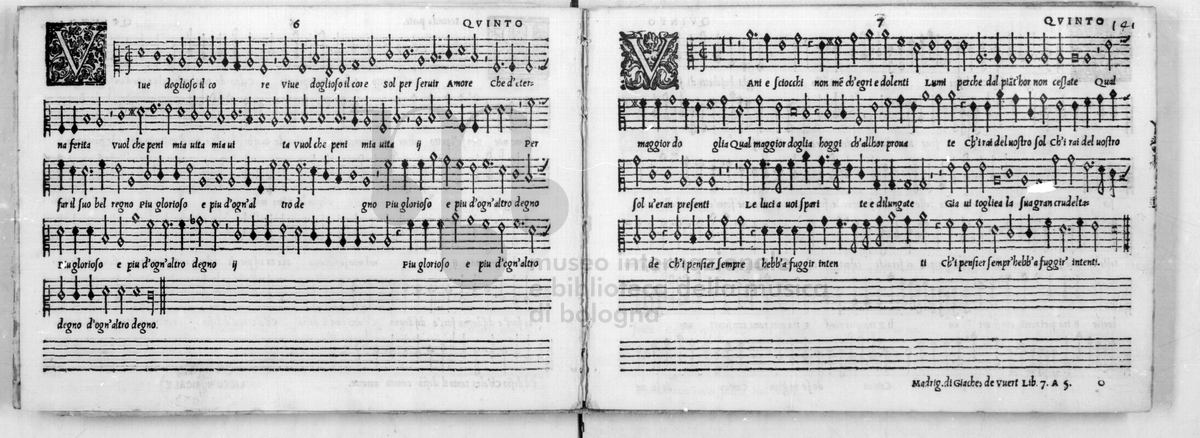 6
QVINTO
V
Iue doglioso il co re viue doglioso il core sol per seruir Amore Che d'eter-
na ferita vuol che peni mia uita mia ui ta vuol che peni mia uita ij Per
far il suo bel regno Piu glorioso e piu d'ogn'al tro de gno Piu glorioso e piu d'ogn'altro degno
Piu glorioso e piu d'ogn'altro degno ij Piu glorioso e piu d'ogn'altro
degno d'ogn'altro degno.
7
QVINTO
141
V
Ani e sciocchi non mē ch'egri e dolenti Lumi perche dal piāt'hor non cessate Qual
maggior do glia Qual maggior doglia hoggi ch'allhor proua te Ch'i rai del uostro sol Ch'i rai del uostro
sol u'eran presenti Le luci a uoi spari te e dilungate Gia ui togliea la sua gran crudelta:
de Ch'i pensier sempre hebb'a fuggir inten ti Ch'i pensier sempr'hebb'a fuggir' intenti.
Madrig. di Giaches de Vuert Lib. 7. A 5.
museo internazionale
e biblioteca della musica
di bologna